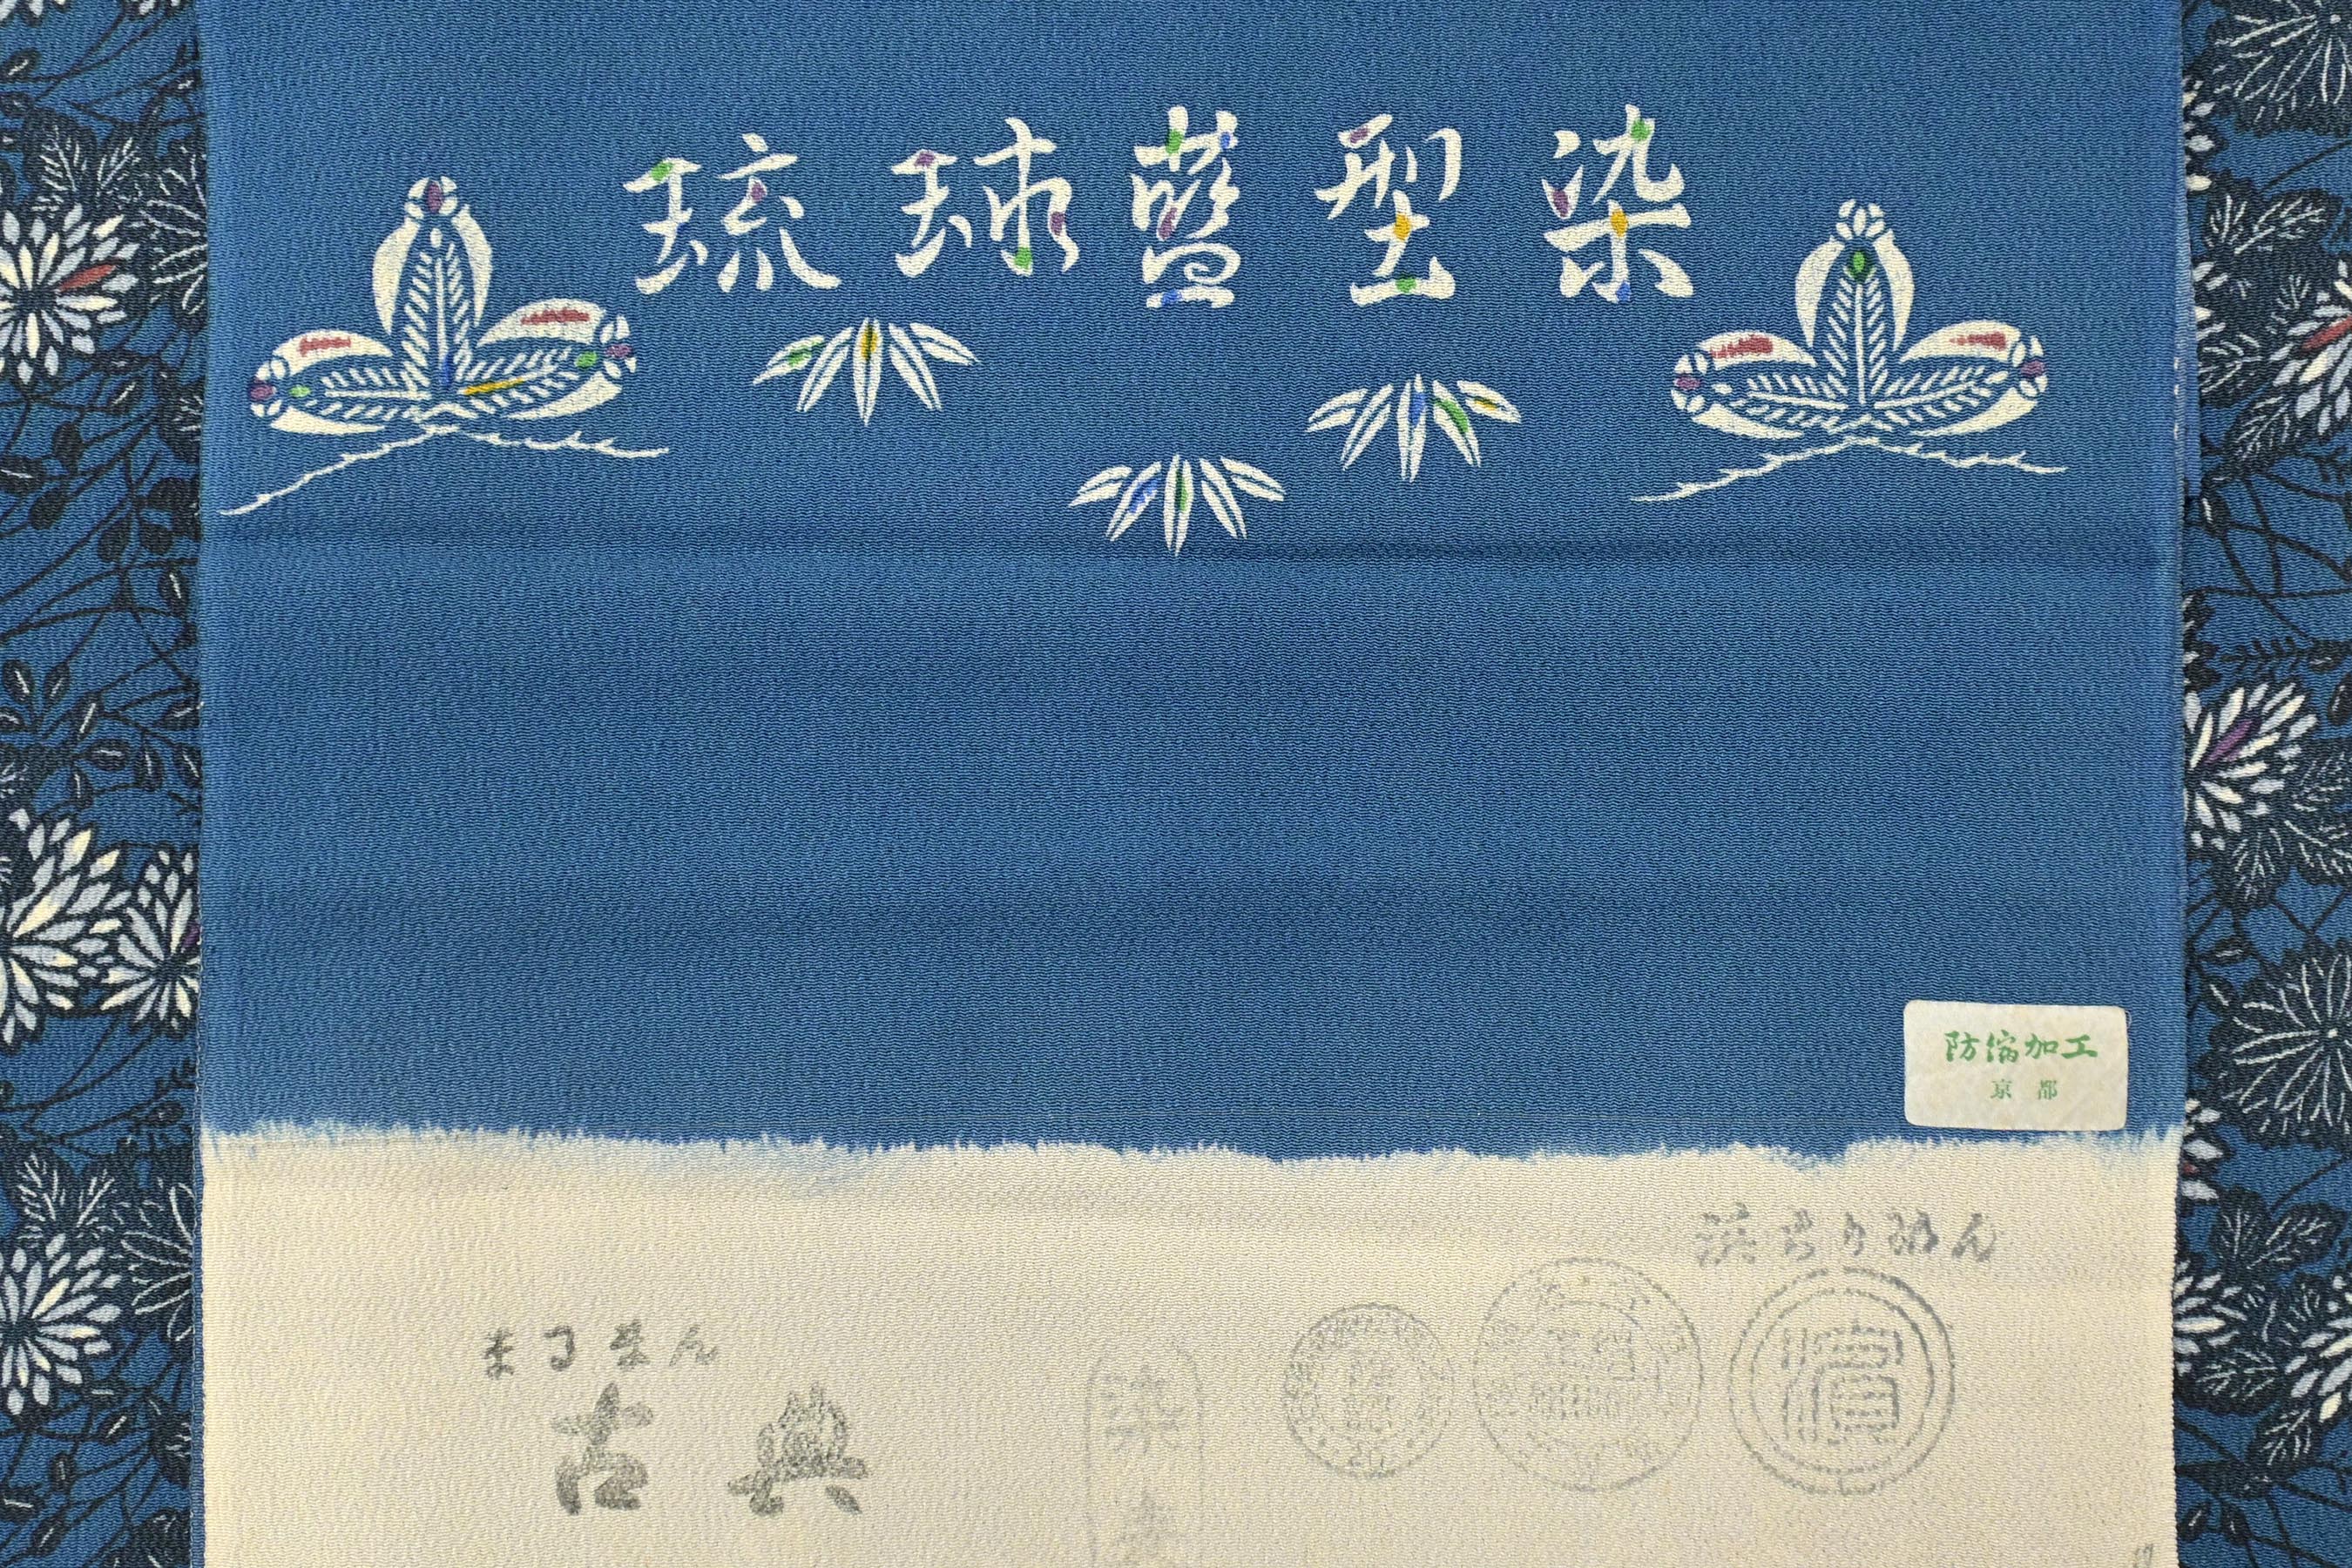 琉球藍型染
防縮加工
京都
浜ちりめん
まるまん
古典
染
浜
17